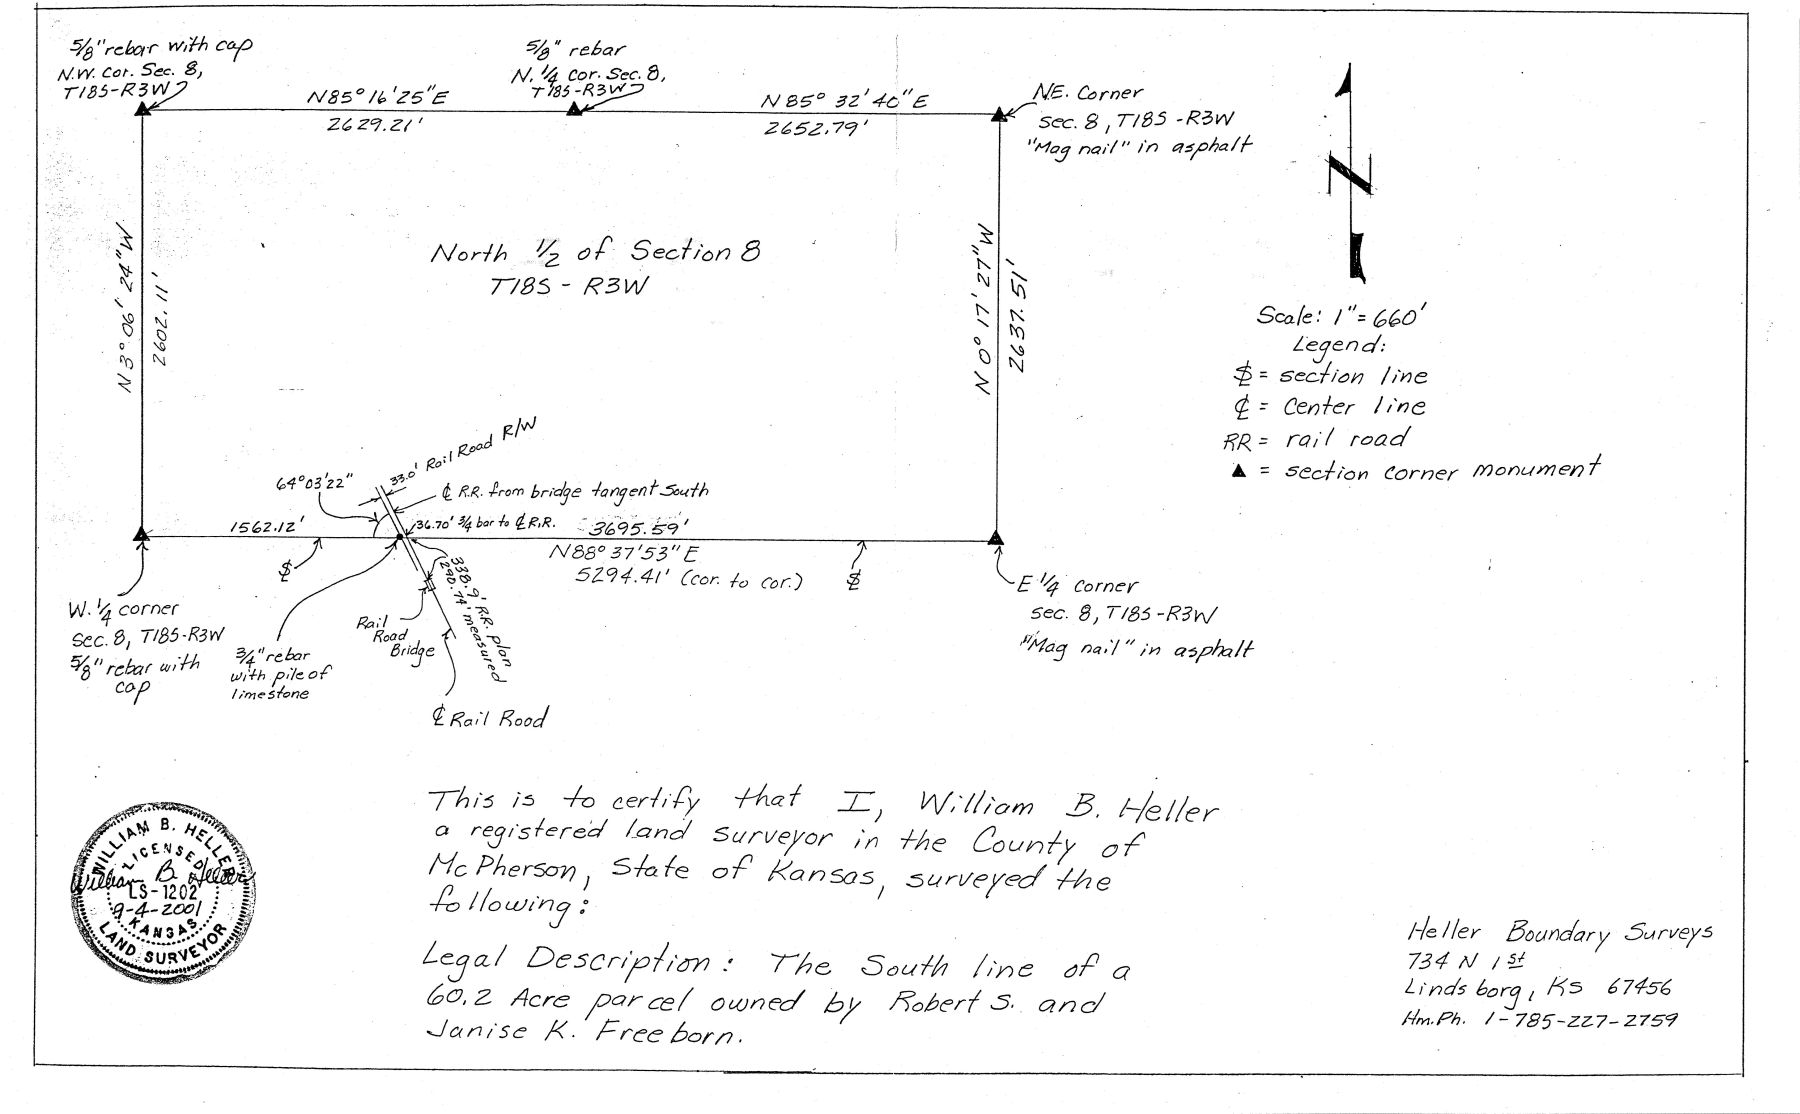 5/8" rebar with cap
N.W. Cor. Sec. 8,
T18S-R3W
5/8" rebar
N. 1/4 cor. Sec. 8,
T18S-R3W
N85° 16' 25" E
2629.21'
N 85° 32' 40" E
2652.79'
NE. Corner
sec. 8, T18S -R3W
"Mag nail" in asphalt
N
N 3° 06' 24" W
2602.11'
North 1/2 of Section 8
T18S - R3W
N 0° 17' 27" W
2637.51'
Scale: 1" = 660'
Legend:
$ = section line
℄ = Center line
RR = rail road
▲ = section corner monument
33.0' Rail Road R/W
64°03'22"
℄ R.R. from bridge tangent South
1562.12'
36.70' 3/4 bar to ℄ R.R.
3695.59'
N88° 37' 53" E
5294.41' (cor. to cor.)
$
$
338.9' R.R. plan
290.74' measured
W. 1/4 corner
Sec. 8, T18S-R3W
5/8" rebar with
cap
3/4" rebar
with pile of
limestone
Rail
Road
Bridge
℄ Rail Road
E 1/4 corner
sec. 8, T18S-R3W
"Mag nail" in asphalt
WILLIAM B. HELLER
LICENSED
William B Heller
LS-1202
9-4-2001
KANSAS
LAND SURVEYOR
This is to certify that I, William B. Heller
a registered land surveyor in the County of
McPherson, State of Kansas, surveyed the
following:
Legal Description: The South line of a
60.2 Acre parcel owned by Robert S. and
Janise K. Freeborn.
Heller Boundary Surveys
734 N 1st
Lindsborg, KS 67456
Hm.Ph. 1-785-227-2759